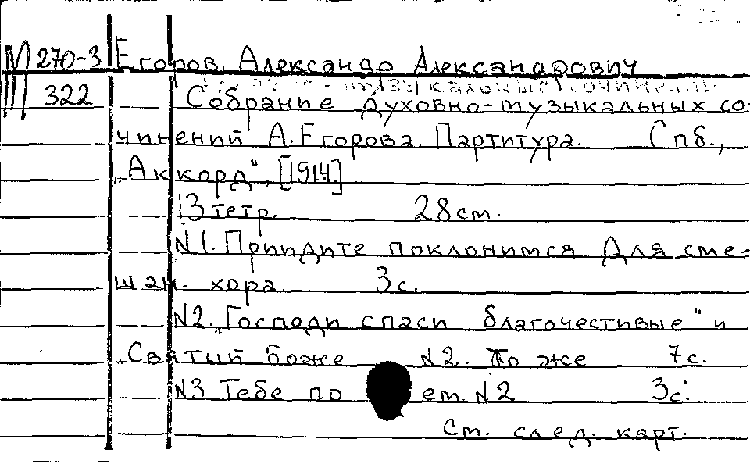 М 270-3 Егоров, Александр Александрович
III 322 Собрание духовно-музыкальных со-
чинений А. Егорова. Партитура. Спб.,
„Аккорд", [1914]
3 тетр. 28 см.
N1. Приидите поклонимся. Для сме-
шан. хора 3с.
N2. „Господи спаси благочестивые" и
„Святый Боже N2. То же 7с.
N3 Тебе по ем. N2 3с.
См. след. карт.